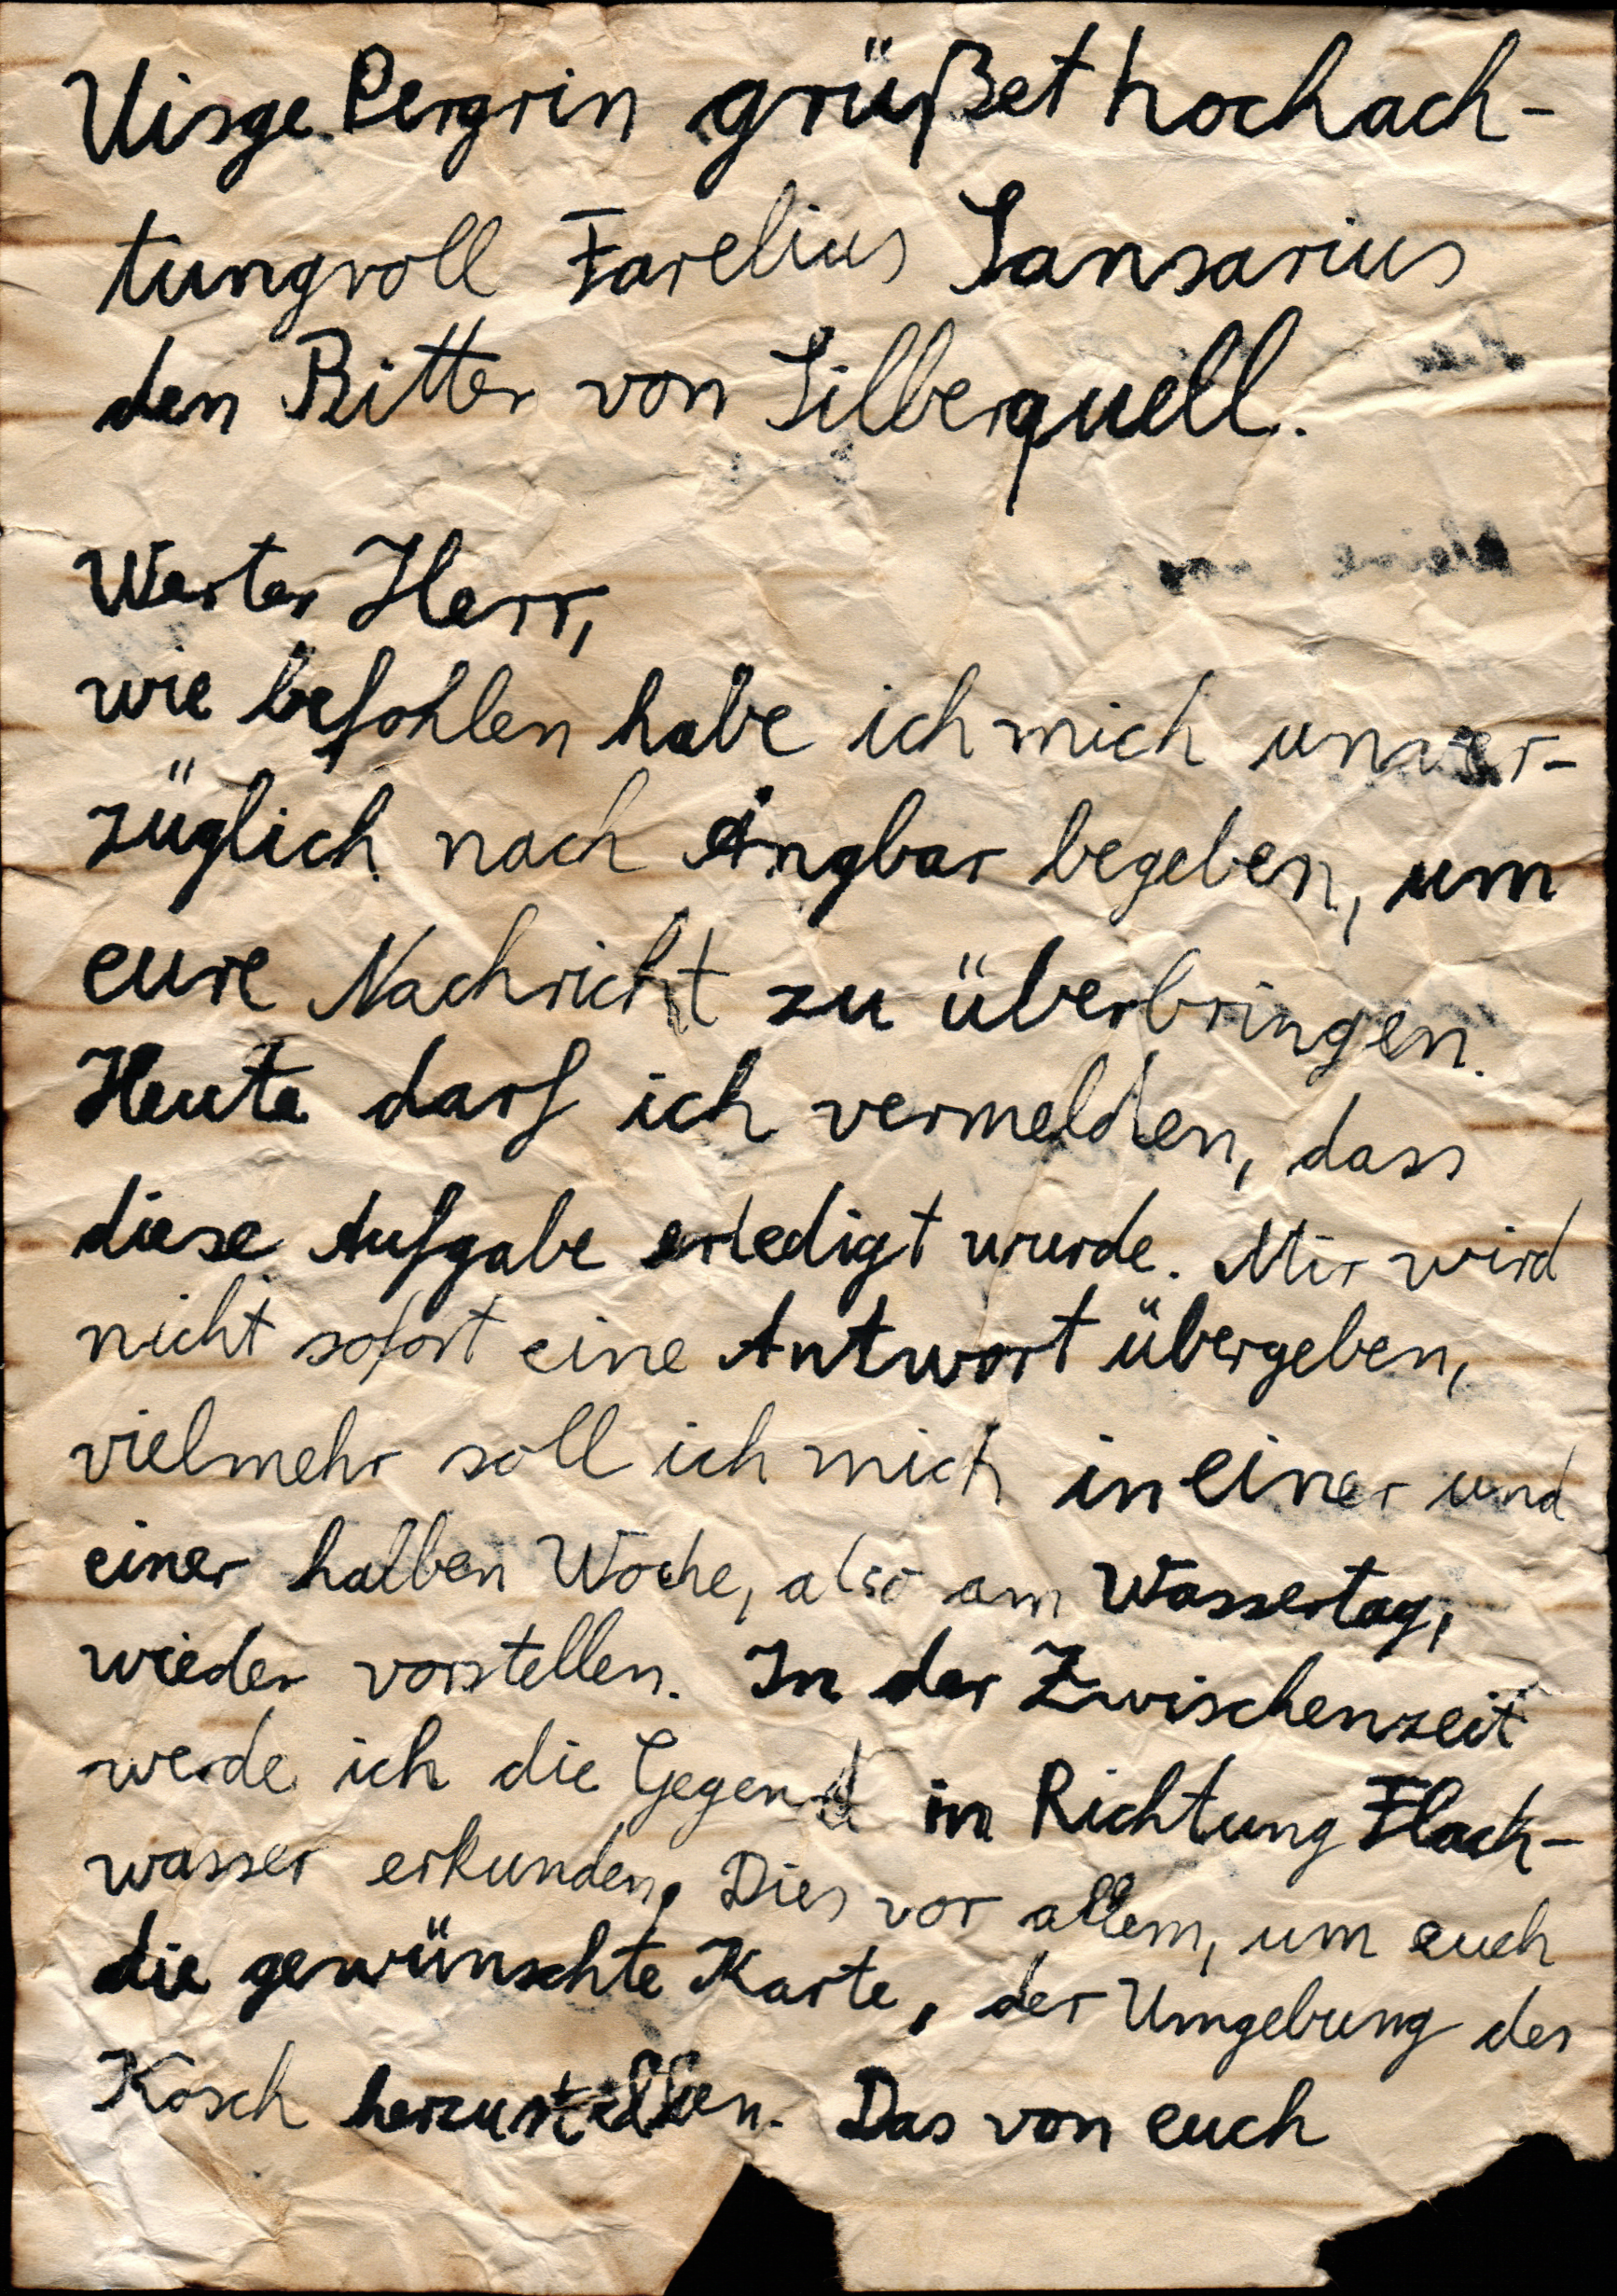 Uisge Pergrin grüßet hochach-
tungvoll Farelius Sansarius
den Ritter von Silberquell.
Werter Herr,
wie befohlen habe ich mich unver-
züglich nach Angbar begeben, um
eure Nachricht zu überbringen.
Heute darf ich vermelden, dass
diese Aufgabe erledigt wurde. Mir wird
nicht sofort eine Antwort übergeben,
vielmehr soll ich mich in einer und
einer halben Woche, also am Wassertag,
wieder vorstellen. In der Zwischenzeit
werde ich die Gegend in Richtung Flach-
wasser erkunden. Dies vor allem, um euch
die gewünschte Karte, der Umgebung des
Kosch herzustellen. Das von euch